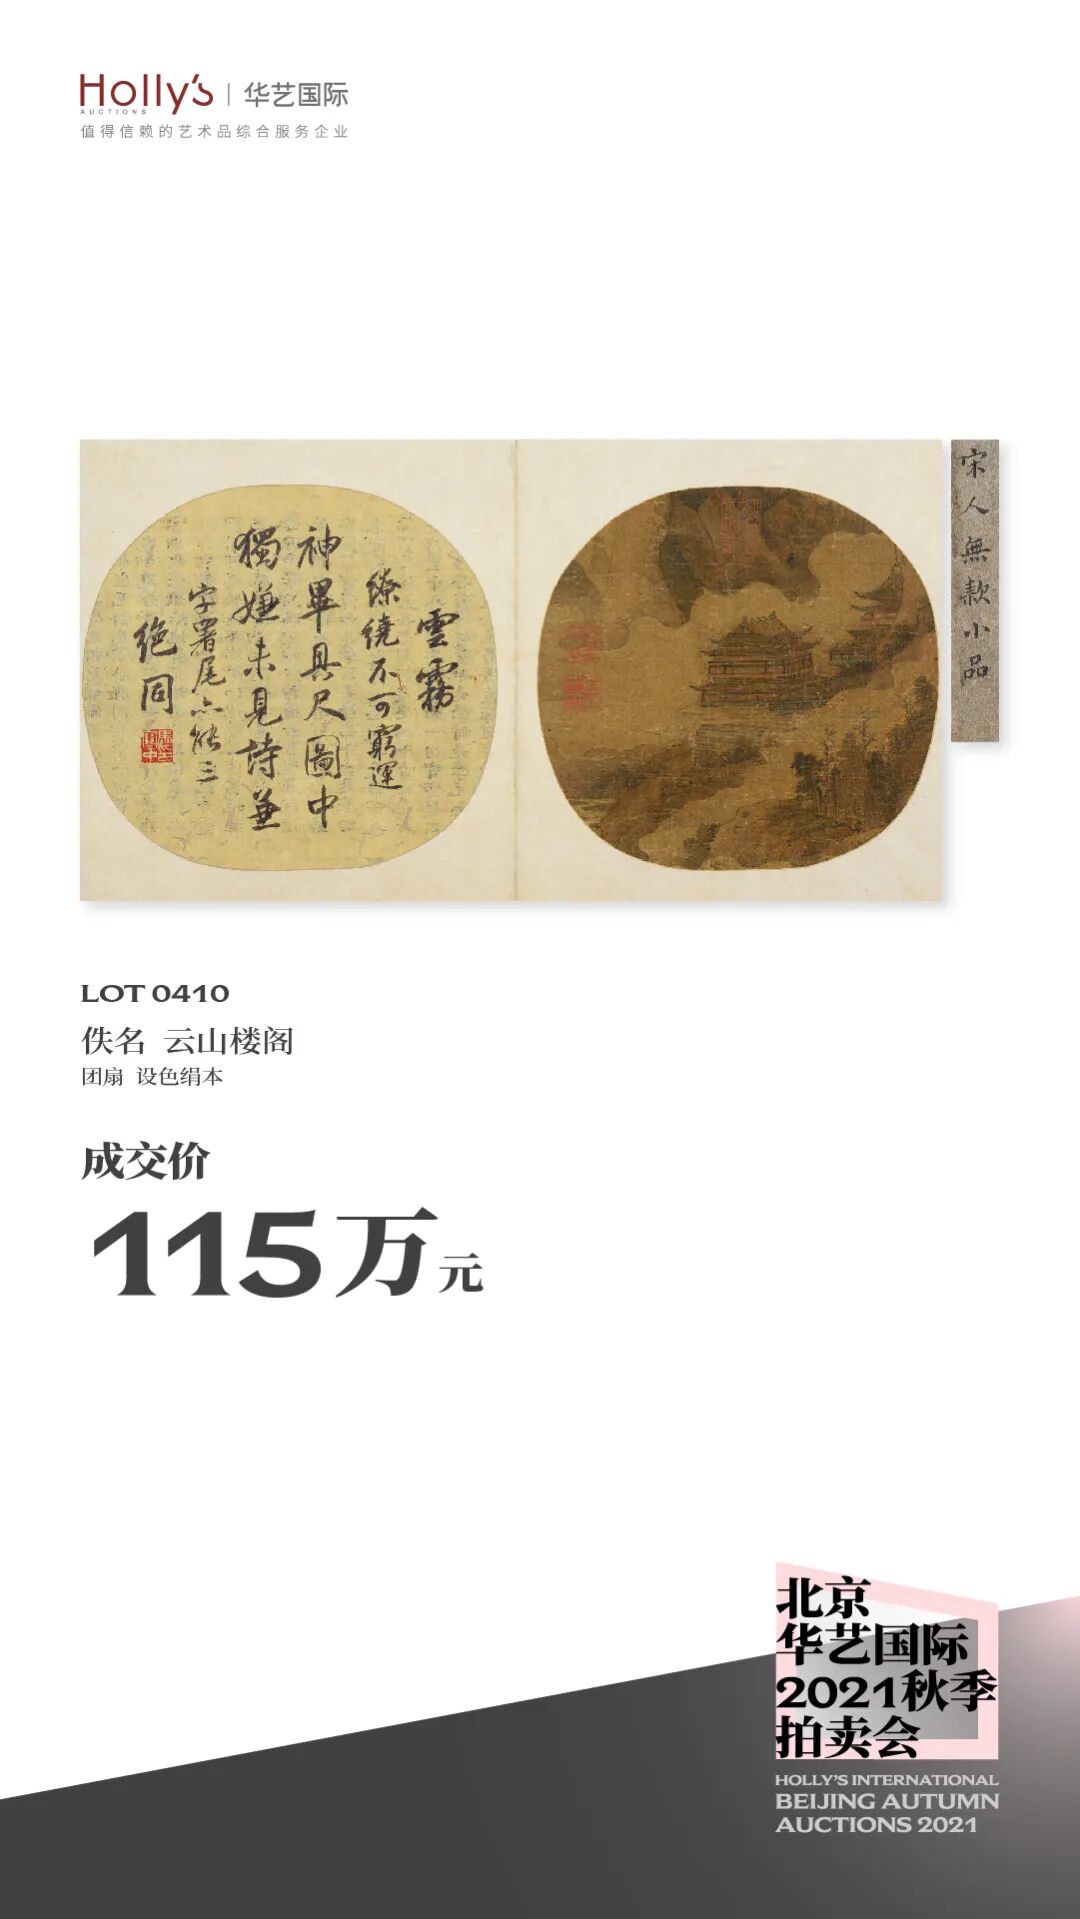 Holly's
AUCTIONS
华艺国际
值得信赖的艺术品综合服务企业
宋人無款小品
雲霧
繚繞不可窮運
神畢具尺圖中
獨嫌未見詩並
字署尾六能三
绝同
LOT 0410
佚名 云山楼阁
团扇 设色绢本
成交价
115万元
北京
华艺国际
2021秋季
拍卖会
HOLLY'S INTERNATIONAL
BEIJING AUTUMN
AUCTIONS 2021